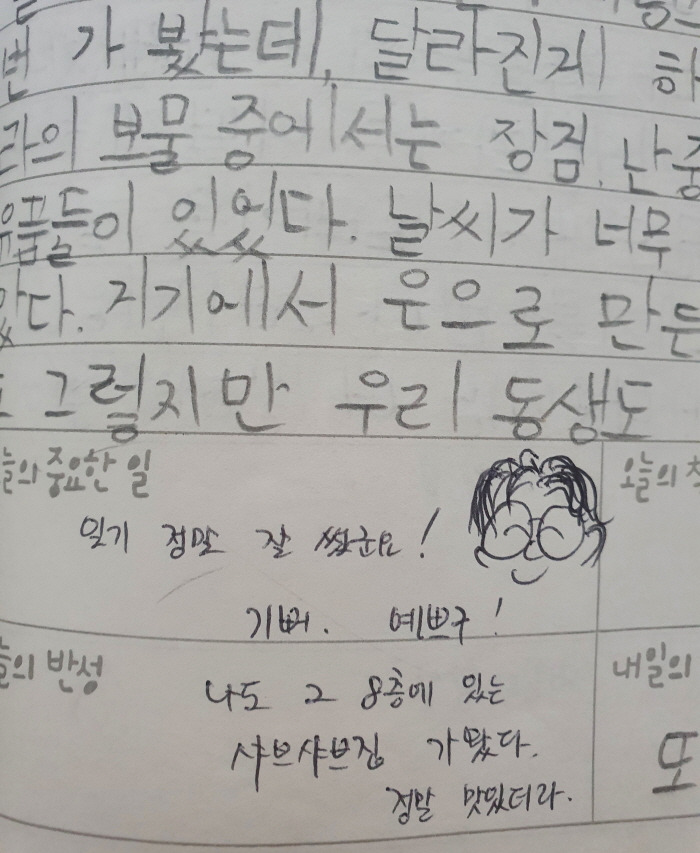 번 가 봤는데, 달라진게 하
라의 보물 중에서는 장점.난중
유품들이 있었다. 날씨가 너무
았다. 거기에서 은으로 만든
그렇지만 우리 동생도
늘의 중요한 일
오늘의 착
일기 정말 잘 썼군요!
기뻐. 예쁘구!
늘의 반성
내일의
나도 그 8층에 있는
샤브샤브집 가봤다.
또
정말 맛있더라.